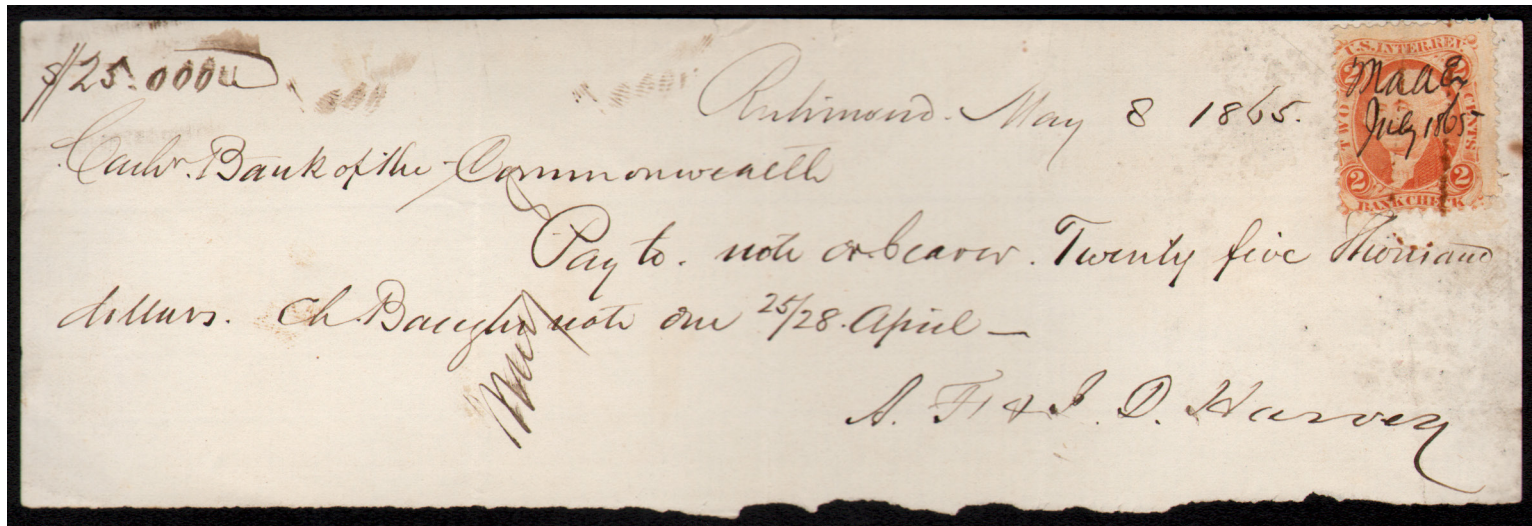 $25.000
Richmond. May 8 1865.
Cashr. Bank of the Commonwealth
Pay to. note or bearer. Twenty five Thousand
dollars. Ch. Baughn note due 25/28. April —
A. F. & J. D. Harvey
U.S. INTER. REV.
TWO CENTS
2 2
July 1865
2 2
BANK CHECK